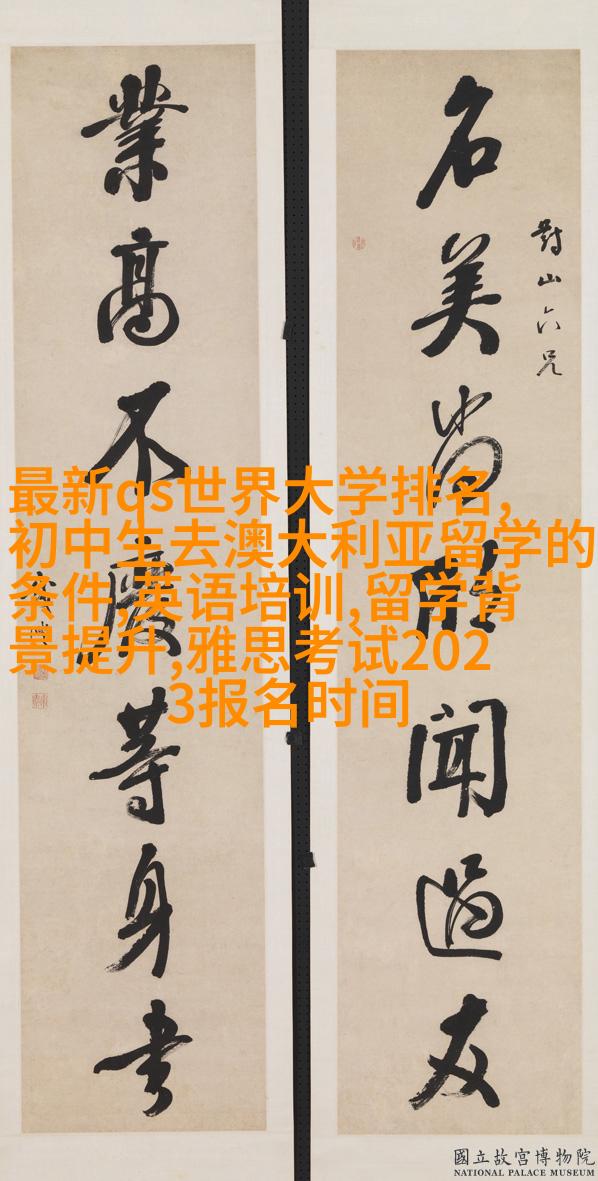 對山六兄
名美尚欣聞過友
業高不廢等身書
最新qs世界大学排名,
初中生去澳大利亚留学的
条件,英语培训,留学背
景提升,雅思考试202
3报名时间
國立故宮博物院
NATIONAL PALACE MUSEUM